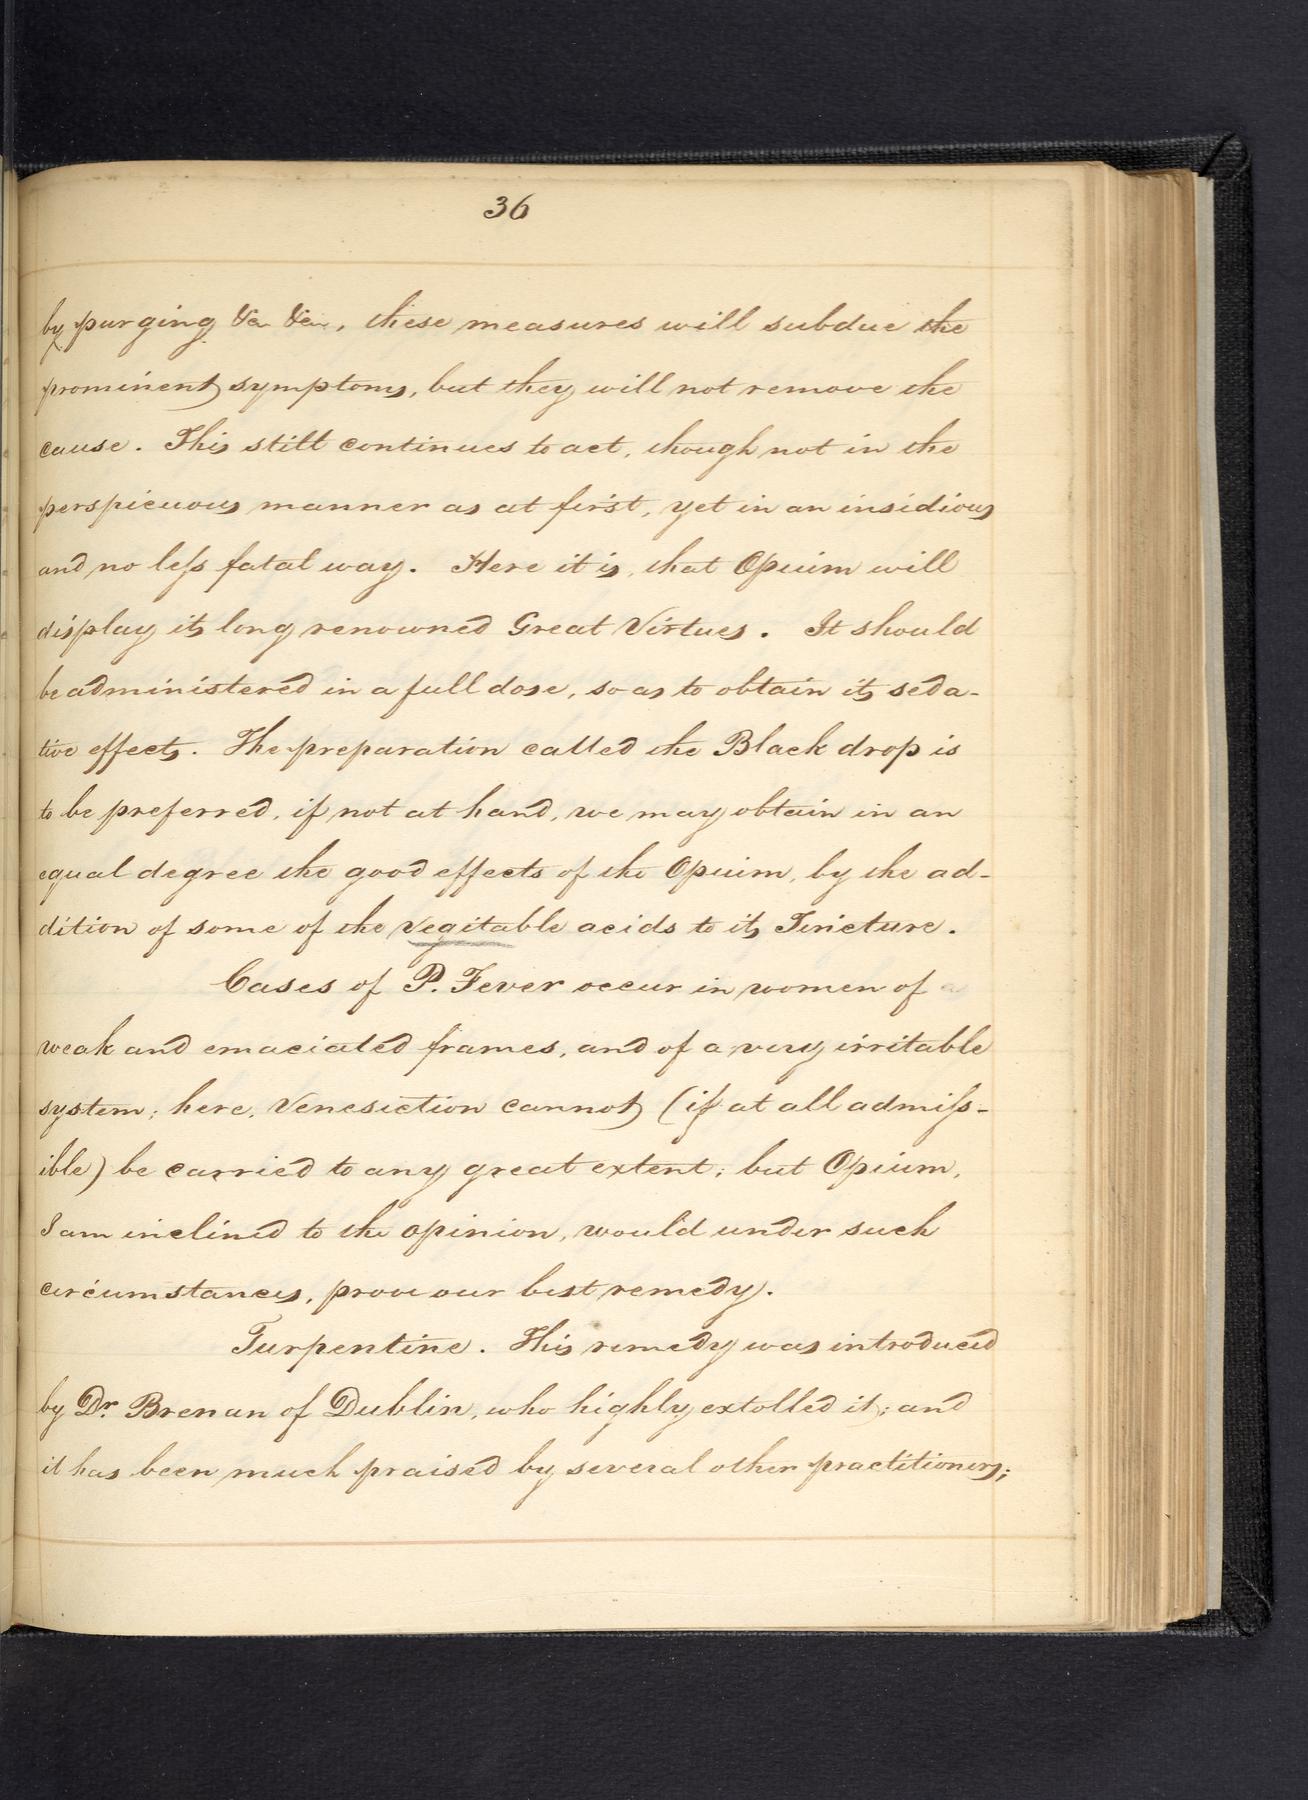 36
by purging &c &c, these measures will subdue the
prominent symptoms, but they will not remove the
cause. This still continues to act, though not in the
perspicuous manner as at first, yet in an insidious
and no less fatal way. Here it is, that Opuim will
display its long renowned Great Virtues. It should
be administered in a full dose, so as to obtain its seda-
tive effects. The preparation called the Black drop is
to be preferred, if not at hand, we may obtain in an
equal degree the good effects of the Opuim, by the ad-
dition of some of the vegitable acids to its Tincture.
Cases of P. Fever occur in women of a
weak and emaciated frames, and of a very irritable
system; here, Venesection cannot (if at all admiss-
ible) be carried to any great extent; but Opium,
I am inclined to the opinion, would under such
circumstances, prove our best remedy.
Turpentine. This remedy was introduced
by Dr. Brenan of Dublin, who highly extolled it; and
it has been much praised by several other practitioners;